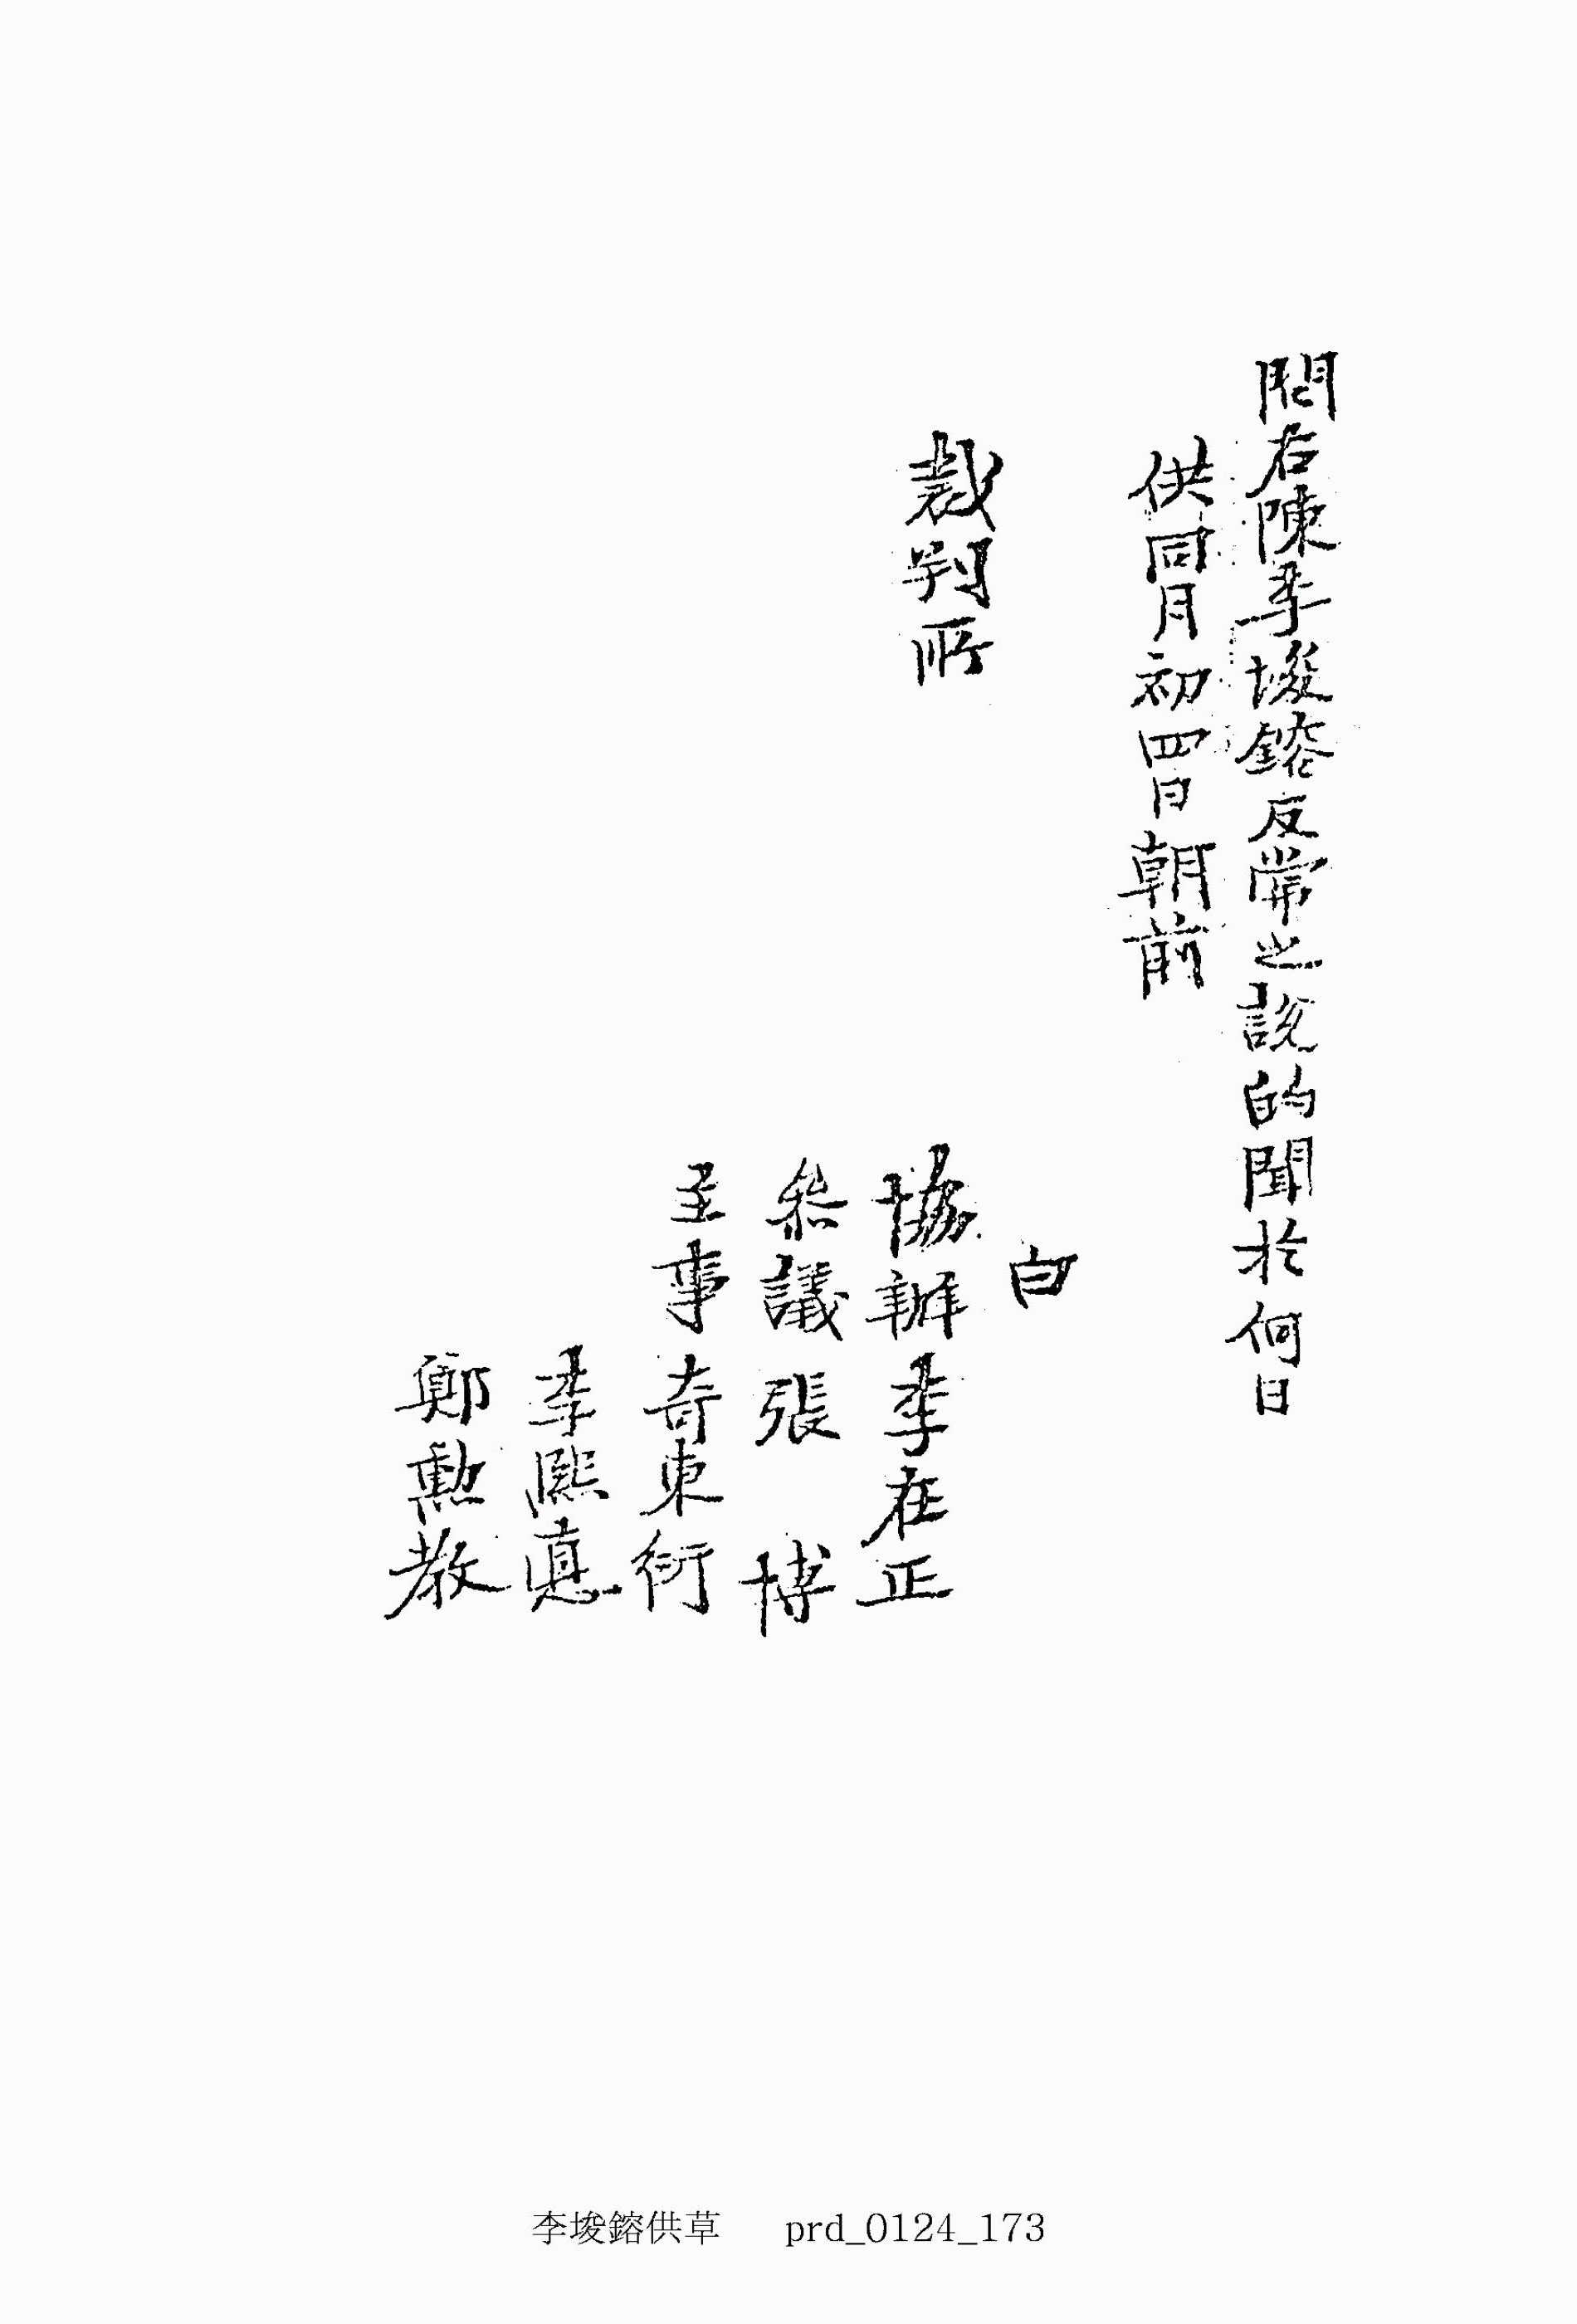 問右陳李埈鎔反常之說的聞於何日
供同月初四日朝前
白
裁判所
協辦李在正
參議張博
主事奇東衍
李熙悳
鄭勳教
李埈鎔供草 prd_0124_173